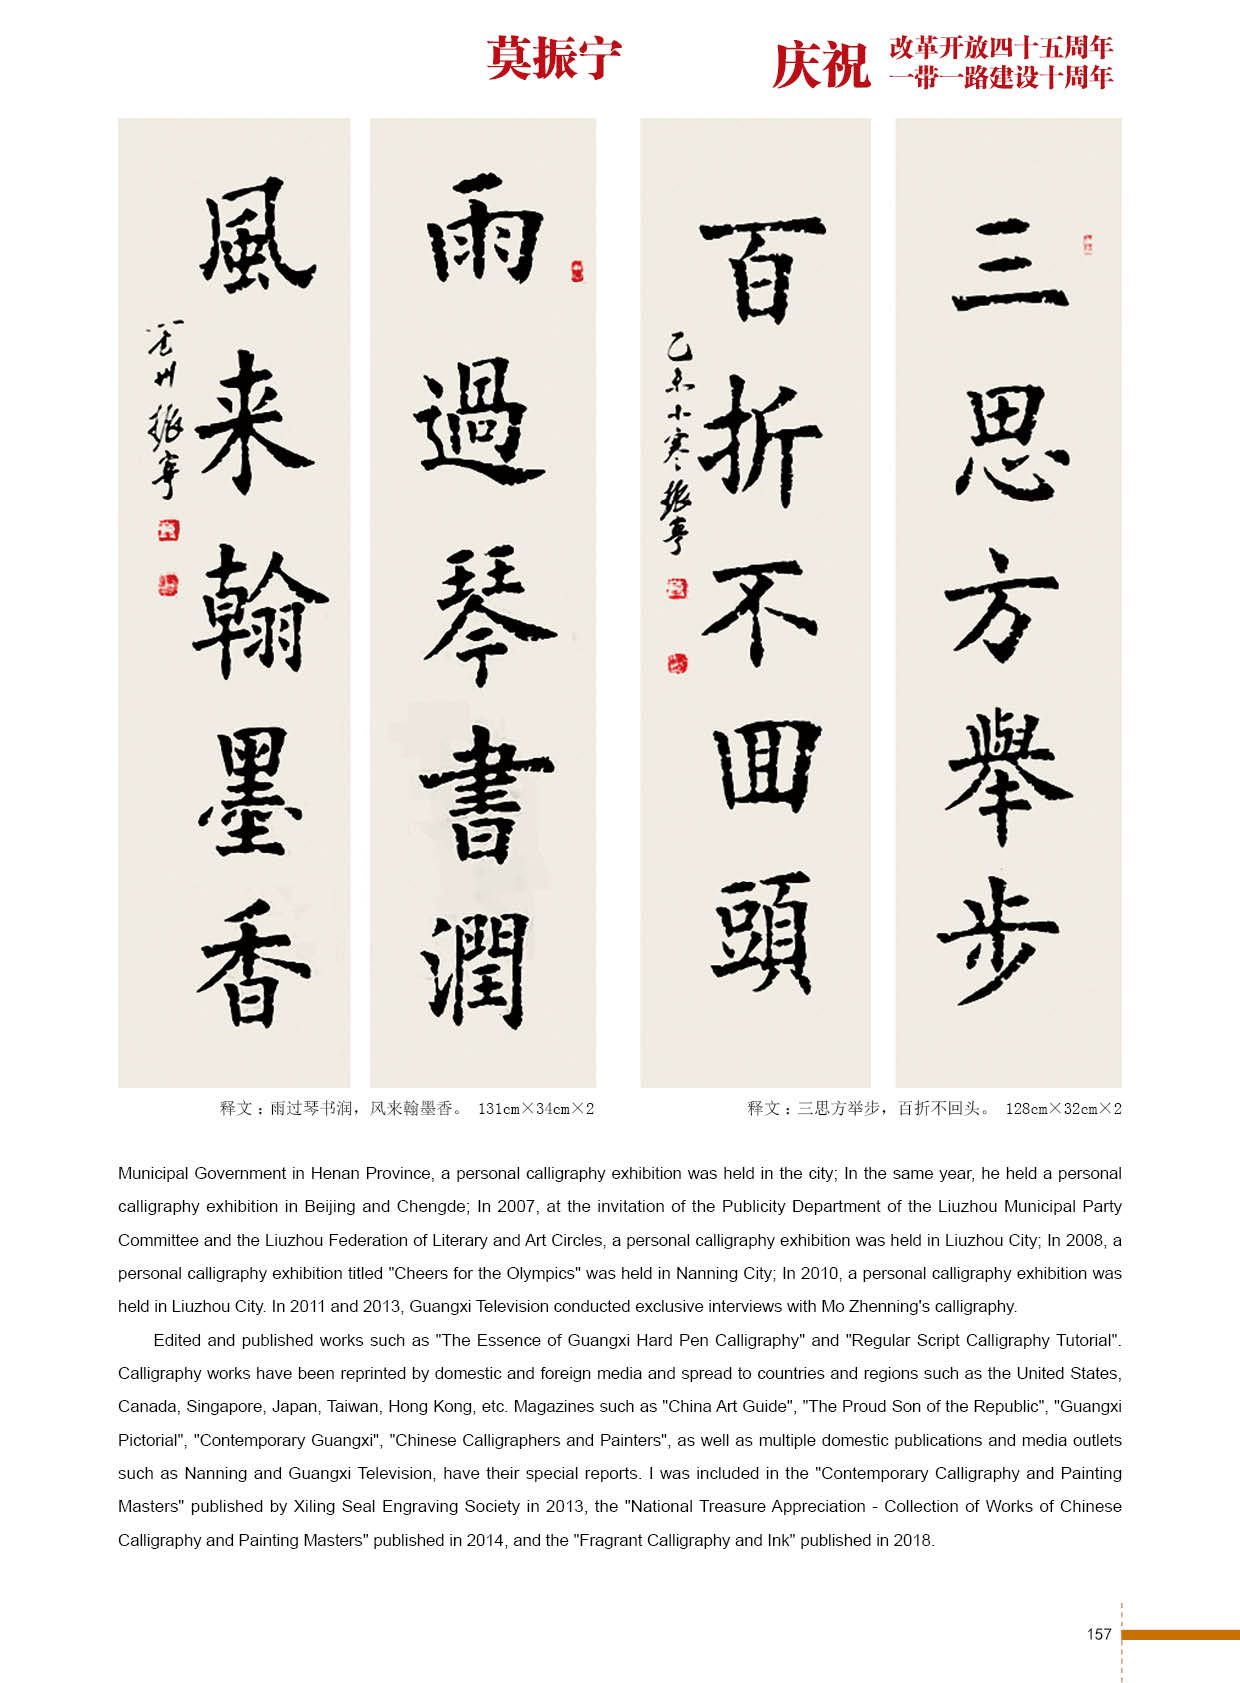 莫振宁
庆祝
改革开放四十五周年
一带一路建设十周年
三思方舉步
百折不囬頭
乙未小寒振寧
雨過琴書潤
風来翰墨香
振寧
释文：雨过琴书润，风来翰墨香。 131cm×34cm×2
释文：三思方举步，百折不回头。 128cm×32cm×2
Municipal Government in Henan Province, a personal calligraphy exhibition was held in the city; In the same year, he held a personal
calligraphy exhibition in Beijing and Chengde; In 2007, at the invitation of the Publicity Department of the Liuzhou Municipal Party
Committee and the Liuzhou Federation of Literary and Art Circles, a personal calligraphy exhibition was held in Liuzhou City; In 2008, a
personal calligraphy exhibition titled "Cheers for the Olympics" was held in Nanning City; In 2010, a personal calligraphy exhibition was
held in Liuzhou City. In 2011 and 2013, Guangxi Television conducted exclusive interviews with Mo Zhenning's calligraphy.
Edited and published works such as "The Essence of Guangxi Hard Pen Calligraphy" and "Regular Script Calligraphy Tutorial".
Calligraphy works have been reprinted by domestic and foreign media and spread to countries and regions such as the United States,
Canada, Singapore, Japan, Taiwan, Hong Kong, etc. Magazines such as "China Art Guide", "The Proud Son of the Republic", "Guangxi
Pictorial", "Contemporary Guangxi", "Chinese Calligraphers and Painters", as well as multiple domestic publications and media outlets
such as Nanning and Guangxi Television, have their special reports. I was included in the "Contemporary Calligraphy and Painting
Masters" published by Xiling Seal Engraving Society in 2013, the "National Treasure Appreciation - Collection of Works of Chinese
Calligraphy and Painting Masters" published in 2014, and the "Fragrant Calligraphy and Ink" published in 2018.
157